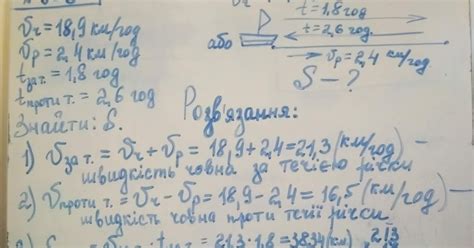 Vч = 18,9 км/год
Vр = 2,4 км/год
t за т. = 1,8 год
t проти т. = 2,6 год
Знайти: S.
t = 1,8 год
t = 2,6 год
або
Vр = 2,4 км/год
S - ?
Розв'язання:
1) V за т. = Vч + Vр = 18,9 + 2,4 = 21,3 (км/год) –
швидкість човна за течією річки
2) V проти т. = Vч - Vр = 18,9 - 2,4 = 16,5 (км/год) –
швидкість човна проти течії річки.
21,3 · 1,8 = 38,34 (км)